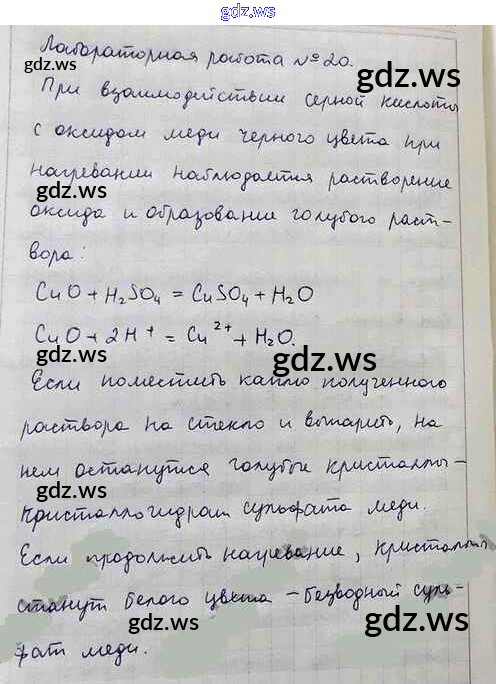 gdz.ws
Лабораторная работа № 20.
gdz.ws
gdz.ws
При взаимодействии серной кислоты
с оксидом меди черного цвета при
нагревании наблюдается растворение
gdz.ws
gdz.ws
оксида и образование голубого раст-
вора:
CuO + H₂SO₄ = CuSO₄ + H₂O
CuO + 2H⁺ = Cu²⁺ + H₂O.
gdz.ws
gdz.ws
Если поместить каплю полученного
раствора на стекло и выпарить, на
нем останутся голубые кристаллы-
gdz.ws
gdz.ws
кристаллогидрат сульфата меди.
Если продолжить нагревание, кристаллы
станут белого цвета - безводный суль-
gdz.ws
gdz.ws
фат меди.